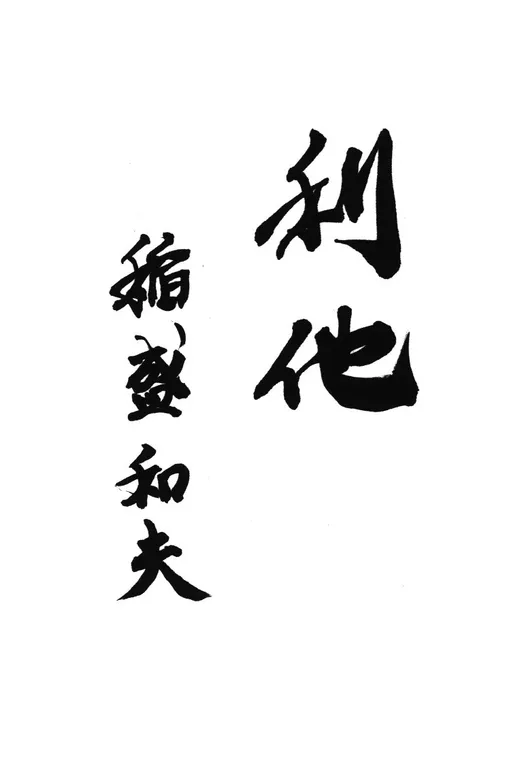 利他
稲盛和夫